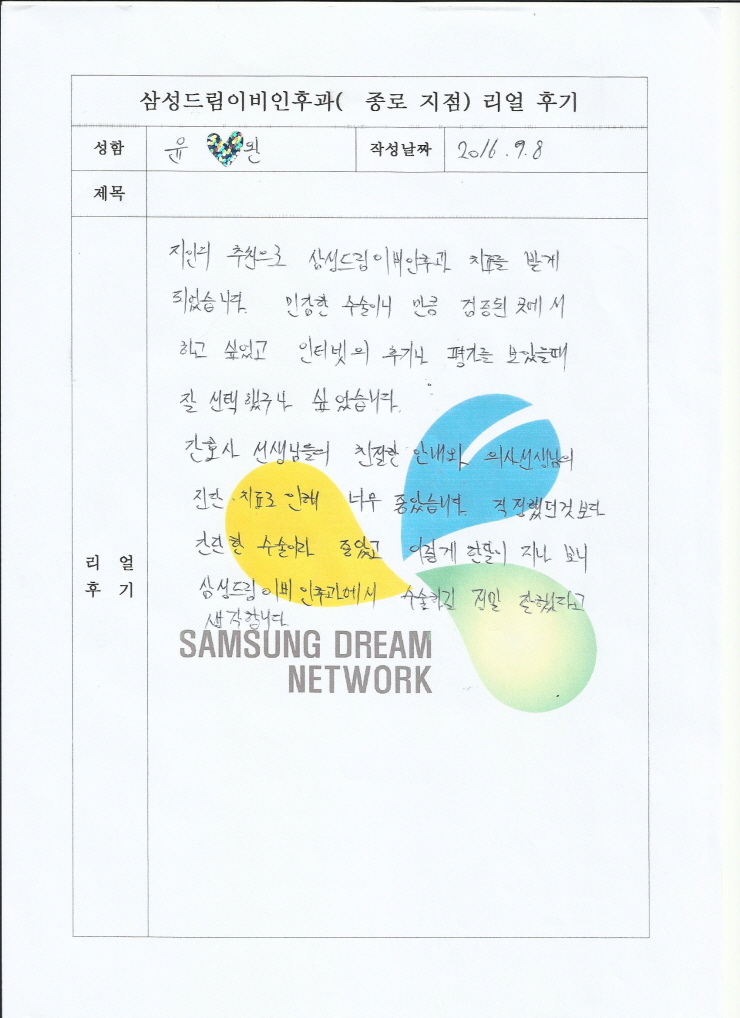 삼성드림이비인후과( 종로 지점) 리얼 후기
성함 윤 원 작성날짜 2016.9.8
제목
지인의 추천으로 삼성드림이비인후과 치료를 받게
되었습니다. 민감한 수술이니 만큼 검증된 곳에서
하고 싶었고 인터넷의 후기나 평가를 보았을때
잘 선택했구나 싶었습니다.
간호사 선생님들의 친절한 안내와 의사선생님의
진단·치료로 인해 너무 좋았습니다. 걱정했던것 보다
간단한 수술이라 좋았고 이렇게 한달이 지나 보니
리얼
후기
삼성드림이비인후과에서 수술하길 정말 잘했다고
생각합니다.
SAMSUNG DREAM
NETWORK